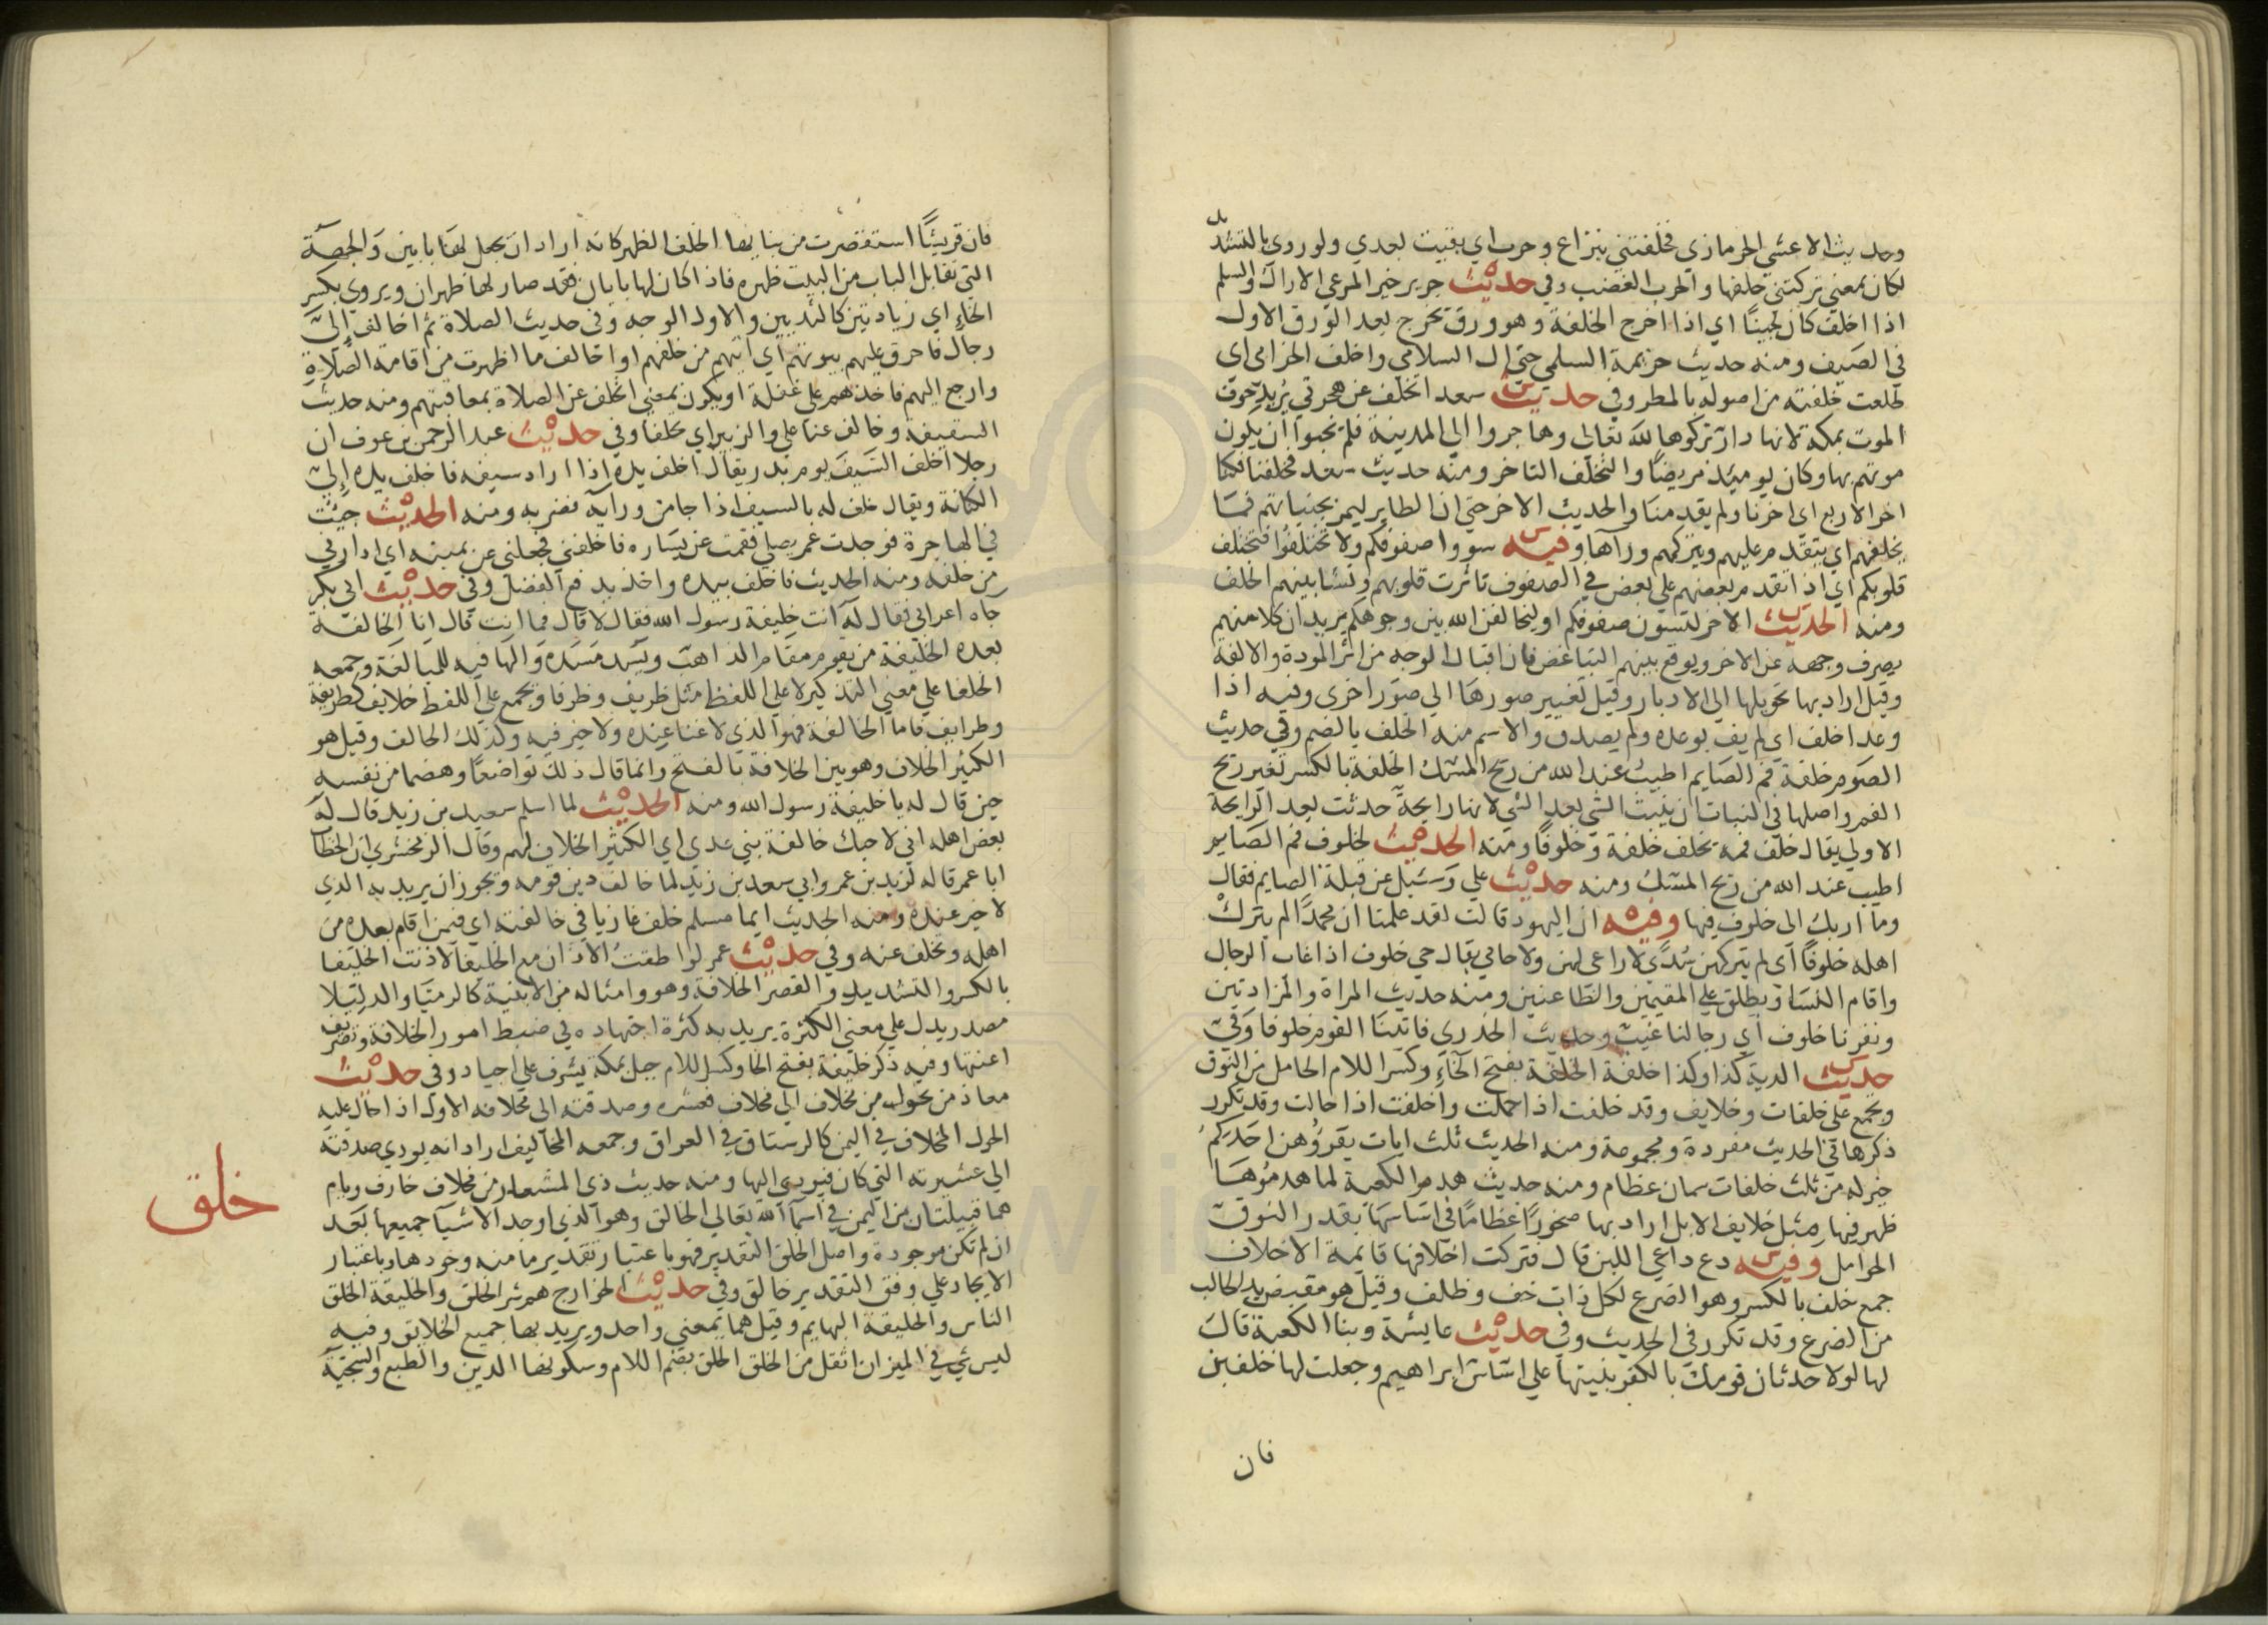 وحديث الاعشي الحرمازي فخلفتني بنزاع وحرب اي بقيت بعدي ولو روي بالتشديد
لكان بمعني تركتني خلفها والحرب الغضب وفي حديث جرير خير المرعي الاراك والسلم
اذا اخلف كان لجينًا اي اذا اخرج الخلفة وهو ورق يخرج بعد الورق الاول
في الصيف ومنه حديث خزيمة السلمي حتي ال السلامي واخلف الخزامي اي
طلعت خلفته من اصوله بالمطر وفي حديث سعد اتخلف عن هجرتي يريد خوف
الموت بمكة لانها دار تركوها لله تعالي وهاجروا الي المدينة فلم يحبوا ان يكون
موتهم بها وكان يوميئذ مريضًا والتخلف التاخر ومنه حديث سعد فخلفنا فكنا
اخر الاربع اي اخرنا ولم يقدمنا والحديث الاخر حتي ان الطاير ليمر بجنباتهم فما
يخلفهم اي يتقدم عليهم ويتركهم ورآها وفيه سووا صفوفكم ولا تختلفوا فتختلف
قلوبكم اي اذا تقدم بعضهم علي بعض في الصفوف تاثرت قلوبهم ونشا بينهم الخلف
ومنه الحديث الاخر لتسون صفوفكم او ليخالفن الله بين وجوهكم يريد ان كلا منهم
يصرف وجهه عن الاخر ويوقع بينهم التباغض فان اقبال الوجه من اثر المودة والالفة
وقيل اراد بها تحويلها الي الادبار وقيل تغيير صورها الي صور اخري وفيه اذا
وعد اخلف اي لم يف بوعده ولم يصدق والاسم منه الخلف بالضم وفي حديث
الصوم خلفة فم الصايم اطيب عند الله من ريح المسك الخلفة بالكسر تغير ريح
الفم واصلها في النبات ان ينبت الشي بعد الشي لانها رايحة حدثت بعد الرايحة
الاولي يقال خلف فمه يخلف خلفة وخلوفًا ومنه الحديث لخلوف فم الصايم
اطيب عند الله من ريح المسك ومنه حديث علي وسئيل عن قبلة الصايم فقال
وما اربك الي خلوف فيها وفيه ان اليهود قالت لقد علمنا ان محمدًا لم يترك
اهله خلوفًا اي لم يتركهن سُدًي لا راعي لهن ولا حامي يقال حي خلوف اذا غاب الرجال
واقام النسا ويطلق علي المقيمين والظاعنين ومنه حديث المراة والمزادتين
ونفرنا خلوف اي رجالنا غيب وحديث الخدري فاتينا القوم خلوفا وفي
حديث الدية كذا وكذا خلفة الخلفة بفتح الخاء وكسر اللام الحامل من النوق
ويجمع علي خلفات وخلايف وقد خلفت اذا حملت واخلفت اذا حالت وقد تكرر
ذكرها في الحديث مفردة ومجموعة ومنه الحديث ثلث ايات يقرؤهن احدكم
خير له من ثلث خلفات سمان عظام ومنه حديث هدم الكعبة لما هدموها
ظهر فيها مثل خلايف الابل اراد بها صخورًا عظامًا في اساسها بقدر النوق
الحوامل وفيه دع داعي اللبن قال فتركت اخلافها قايمة الاخلاف
جمع خلف بالكسر وهو الضرع لكل ذات خف وظلف وقيل هو مقبض يد الحالب
من الضرع وقد تكرر في الحديث وفي حديث عايشة وبنا الكعبة قال
لها لولا حدثان قومك بالكفر بنيتها علي اساس ابراهيم وجعلت لها خلفين
فان
فان قريشًا استقصرت من بنايها الخلف الظهر كانه اراد ان يجعل لها بابين والجهة
التي تقابل الباب من البيت ظهره فاذا كان لها بابان فقد صار لها ظهران ويروي بكسر
الخاء اي زيادتين كالثديين والاول الوجه وفي حديث الصلاة ثم اخالف الي
رجال فاحرق عليهم بيوتهم اي اتيهم من خلفهم او اخالف ما اظهرت من اقامة الصلاة
وارجع اليهم فاخذهم علي غفلة او يكون بمعني اتخلف عن الصلاة بمعاقبتهم ومنه حديث
السقيفة وخالف عنا علي والزبير اي تخلفا وفي حديث عبد الرحمن بن عوف ان
رجلا اخلف السيف يوم بدر يقال اخلف يده اذا اراد سيفه فاخلف يده الي
الكنانة ويقال خلف له بالسيف اذا جا من ورآيه فضربه ومنه الحديث جيت
في الهاجرة فوجدت عمر يصلي فقمت عن يساره فاخلفني فجعلني عن يمينه اي ادارني
من خلفه ومنه الحديث فاخلف بيده واخذ يدفع الفضل وفي حديث ابي بكر
جآه اعرابي فقال له انت خليفة رسول الله فقال لا قال فما انت قال انا الخالفة
بعده الخليفة من يقوم مقام الذاهب ويسد مسده والها فيه للمبالغة وجمعه
الخلفا علي معني التذكير لا علي اللفظ مثل ظريف وظرفا ويجمع علي اللفظ خلايف كطريفة
وطرايف فاما الخالفة فهو الذي لا غنا عنده ولا خير فيه وكذلك الخالف وقيل هو
الكثير الخلاف وهو بين الخلافة بالفتح وانما قال ذلك تواضعا وهضما من نفسه
حين قال له يا خليفة رسول الله ومنه الحديث لما اسلم سعيد بن زيد قال له
بعض اهله اني لاحبك خالفة بني عدي اي الكثير الخلاف لهم وقال الزمخشري ان الخطاب
ابا عمر قاله لزيد بن عمرو ابي سعد بن زيد لما خالف دين قومه ويجوز ان يريد به الذي
لا خير عنده ومنه الحديث ايما مسلم خلف غازيا في خالفته اي فيمن اقام بعده من
اهله وتخلف عنه وفي حديث عمر لو اطقت الاذان مع الخليفا لاذنت الخليفا
بالكسر والتشديد والقصر الخلافة وهو وامثاله من الابنية كالرميا والدليلا
مصدر يدل علي معني الكثرة يريد به كثرة اجتهاده في ضبط امور الخلافة وتصريف
اعنتها وفيه ذكر خليفة بفتح الخا وكسر اللام جبل بمكة يشرف علي اجياد وفي حديث
معاذ من تحول من مخلاف الي مخلاف فعشره وصدقته الي مخلافه الاول اذا حال عليه
الحول المخلاف في اليمن كالرستاق في العراق وجمعه المخاليف اراد انه يودي صدقته
الي عشيرته التي كان فيودي اليها ومنه حديث ذي المشعار من مخلاف خارف ويام
هما قبيلتان من اليمن في اسمآ الله تعالي الخالق وهو الذي اوجد الاشيآ جميعها بعد
خلق
ان لم تكن موجودة واصل الخلق التقدير فهو باعتبار تقدير ما منه وجودها وباعتبار
الايجاد علي وفق التقدير خالق وفي حديث الخوارج هم شر الخلق والخليقة الخلق
الناس والخليقة البهايم وقيل هما بمعني واحد ويريد بها جميع الخلايق وفيه
ليس شي في الميزان اثقل من الخلق الخلق بضم اللام وسكونها الدين والطبع والسجية